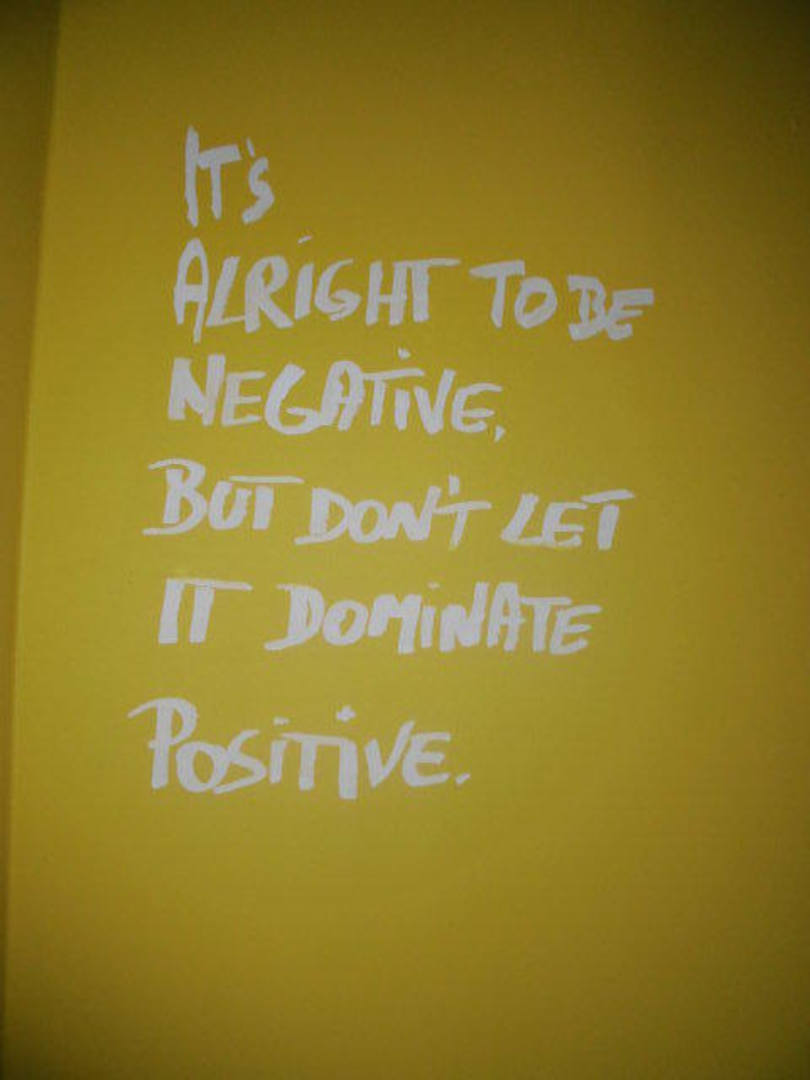 IT'S
ALRIGHT TO BE
NEGATIVE,
BUT DON'T LET
IT DOMINATE
POSITIVE.